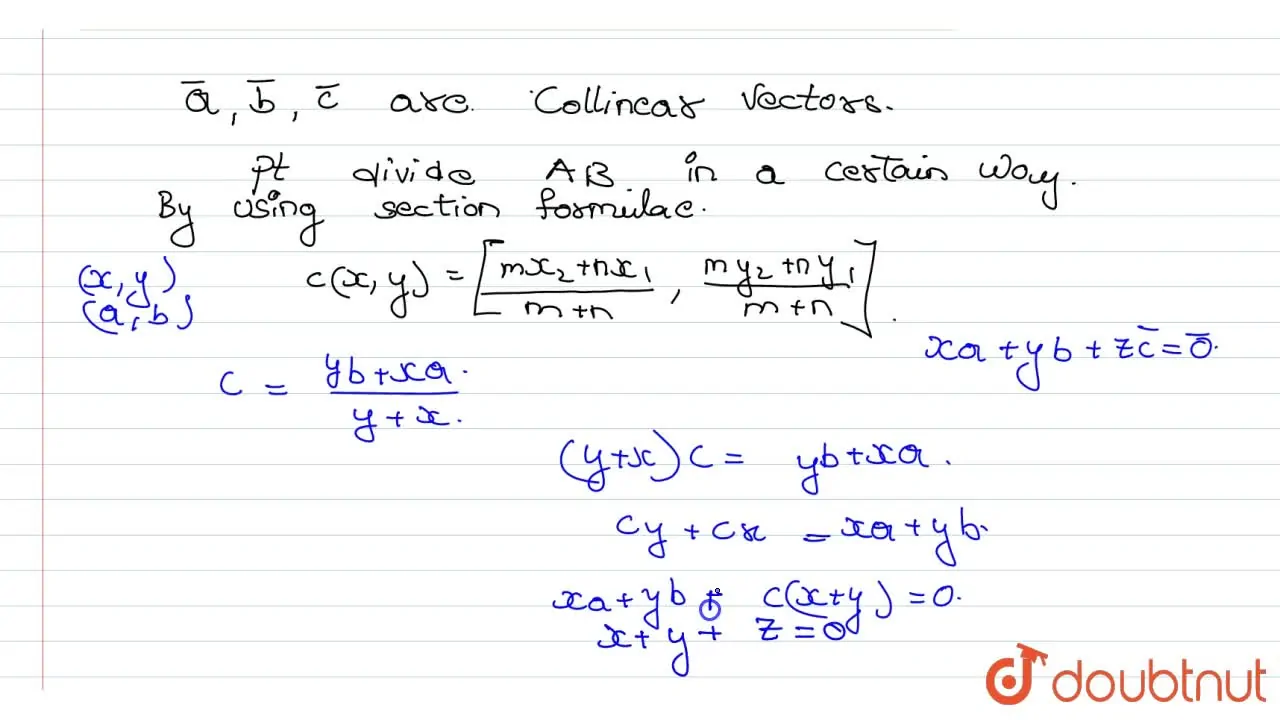 a̅, b̅, c̅ are Collinear Vectors.
Pt divide AB in a certain way.
By using section formulae.
(x, y)
(a, b)
c(x, y) = [ (mx₂+nx₁)/(m+n) , (my₂+ny₁)/(m+n) ].
xa + yb + zc̅ = 0̅.
c = (yb+xa.)/(y+x.)
(y+x) c = yb+xa.
cy + cx = xa + yb.
xa + yb + c(x+y) = 0.
x + y + z = 0
doubtnut